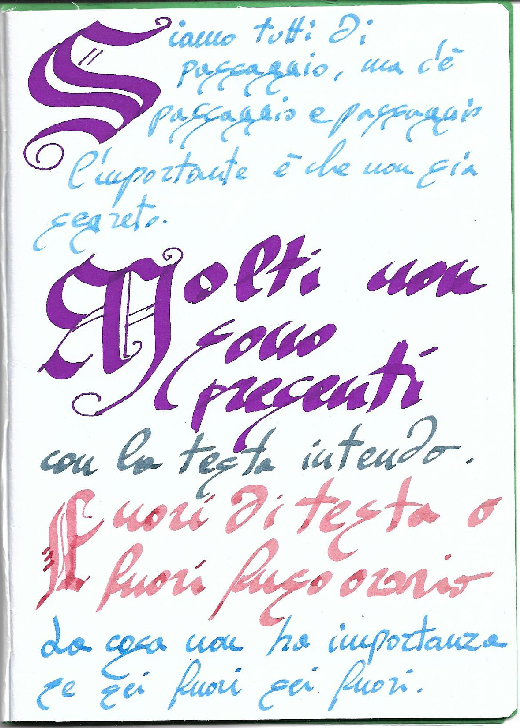 Siamo tutti di
passaggio, ma c'è
passaggio e passaggio
l'importante è che non sia
segreto.
Molti non
sono
presenti
con la testa intendo.
Fuori di testa o
fuori fuso orario
La cosa non ha importanza
se sei fuori sei fuori.